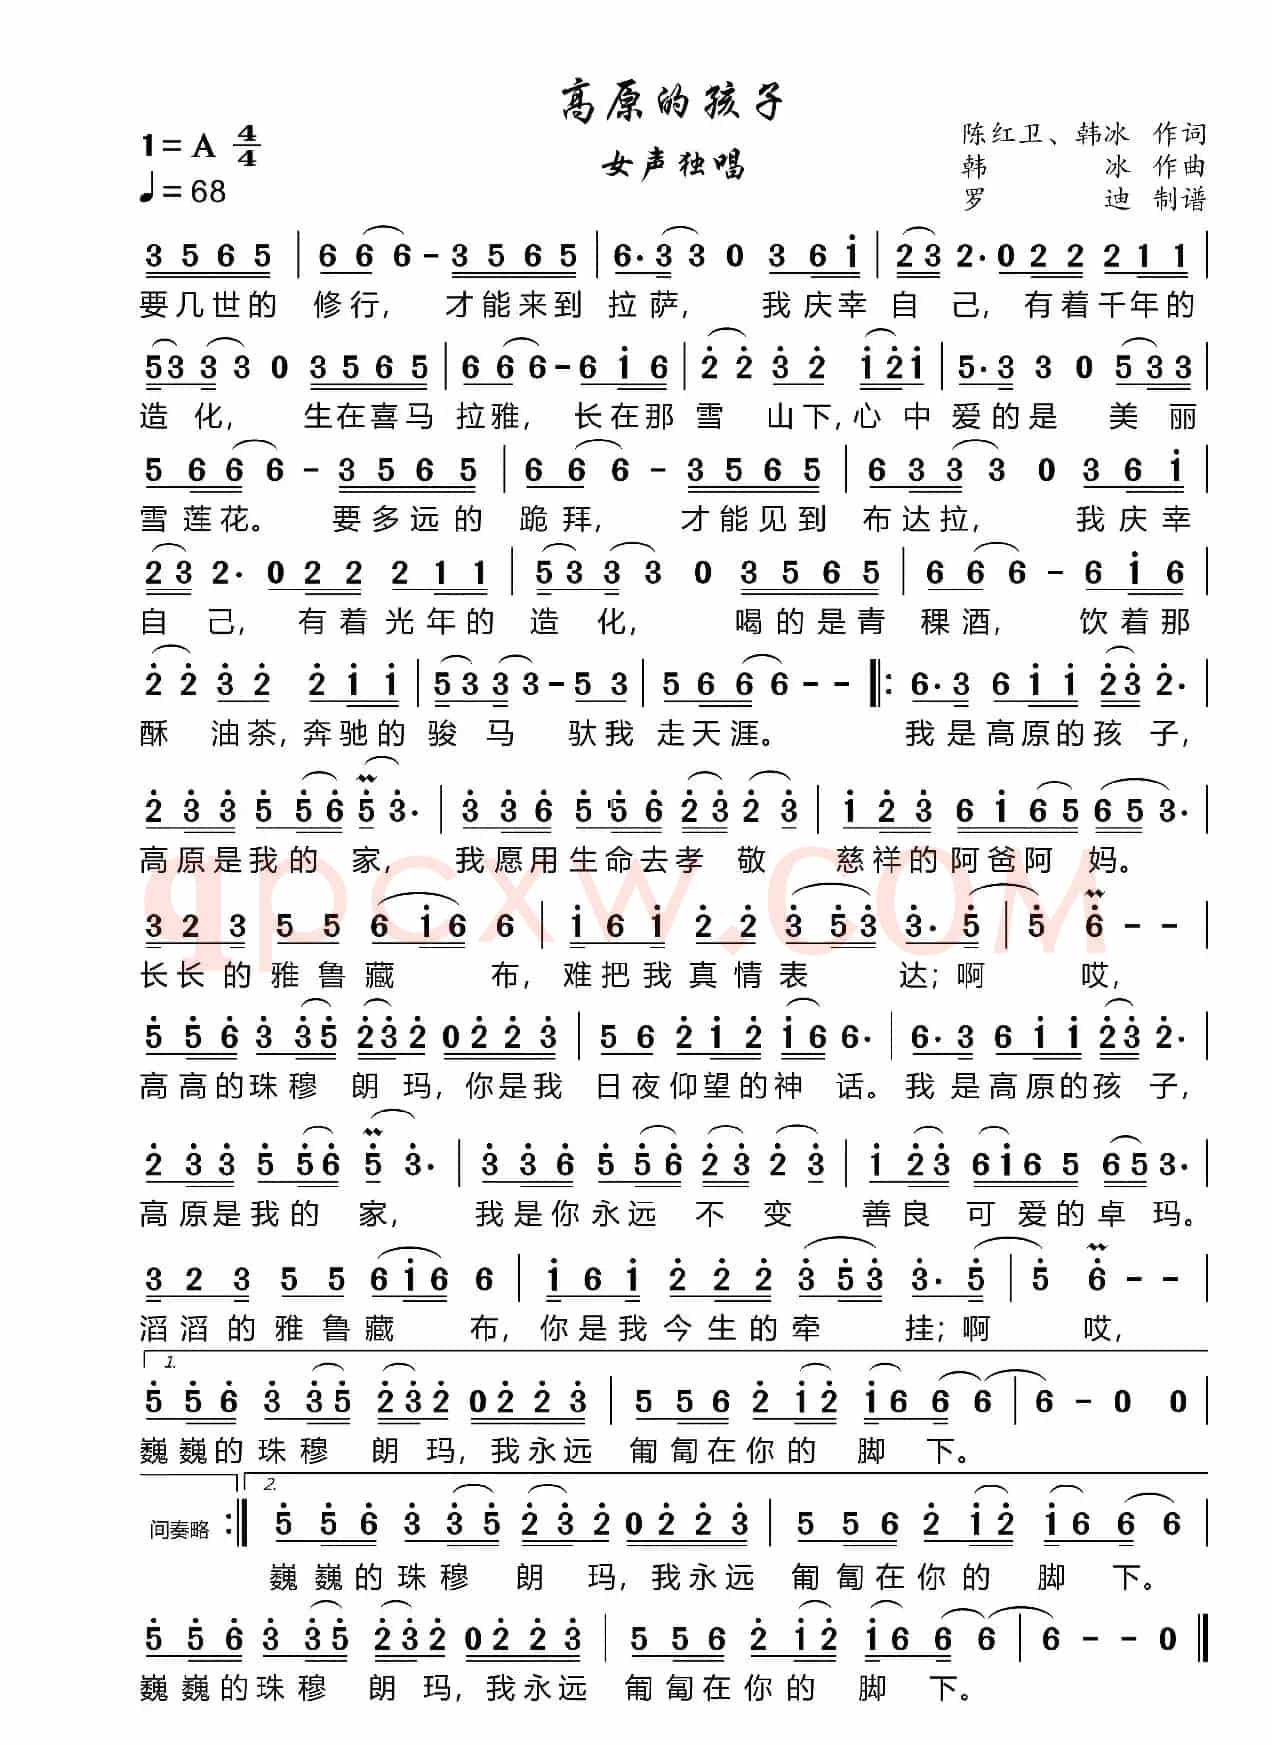 高原的孩子
1=A 4/4
陈红卫、韩冰 作词
女声独唱
韩 冰 作曲
♩=68
罗 迪 制谱
3 5 6 5 | 6 6 6 - 3 5 6 5 | 6· 3 3 0 3 6 i | 2 3 2· 0 2 2 2 1 1 |
要几世的 修行, 才能来到 拉萨, 我庆幸自 己, 有着千年的
5 3 3 3 0 3 5 6 5 | 6 6 6 - 6 i 6 | 2 2 3 2 i 2 i | 5· 3 3 0 5 3 3 |
造 化, 生在喜马 拉雅, 长在那雪 山下,心中爱的是 美丽
5 6 6 6 - 3 5 6 5 | 6 6 6 - 3 5 6 5 | 6 3 3 3 0 3 6 i |
雪莲花。 要多远的 跪拜, 才能见到 布达拉, 我庆幸
2 3 2· 0 2 2 2 1 1 | 5 3 3 3 0 3 5 6 5 | 6 6 6 - 6 i 6 |
自 己, 有着光年的 造 化, 喝的是青 稞酒, 饮着那
2 2 3 2 2 i i | 5 3 3 3 - 5 3 | 5 6 6 6 - - |: 6· 3 6 i i 2 3 2· |
酥 油茶,奔驰的 骏 马 驮我 走天涯。 我是高原的孩 子,
2 3 3 5 5 6 5 3· | 3 3 6 5 5 6 2 3 2 3 | i 2 3 6 i 6 5 6 5 3· |
高原是我的 家, 我愿用生命去孝 敬 慈祥的阿爸阿 妈。
qpcxw.com
3 2 3 5 5 6 i 6 6 | i 6 i 2 2 3 5 3 3· 5 | 5 6 - - |
长长的雅鲁藏 布, 难把我真情表 达; 啊 哎,
5 5 6 3 3 5 2 3 2 0 2 2 3 | 5 6 2 i 2 i 6 6· | 6· 3 6 i i 2 3 2· |
高高的珠穆 朗 玛, 你是我 日夜仰望的神 话。我是高原的孩 子,
2 3 3 5 5 6 5 3· | 3 3 6 5 5 6 2 3 2 3 | i 2 3 6 i 6 5 6 5 3· |
高原是我的 家, 我是你永远 不 变 善良 可 爱的卓玛。
3 2 3 5 5 6 i 6 6 | i 6 i 2 2 2 3 5 3 3· 5 | 5 6 - - |
滔滔的雅鲁藏 布, 你是我今生的牵 挂; 啊 哎,
1.
5 5 6 3 3 5 2 3 2 0 2 2 3 | 5 5 6 2 i 2 i 6 6 6 | 6 - 0 0 |
巍巍的珠穆 朗 玛, 我永远 匍匐在你的 脚 下。
2.
间奏略 :| 5 5 6 3 3 5 2 3 2 0 2 2 3 | 5 5 6 2 i 2 i 6 6 6 |
巍巍的珠穆 朗 玛, 我永远 匍匐在你的 脚 下。
5 5 6 3 3 5 2 3 2 0 2 2 3 | 5 5 6 2 i 2 i 6 6 6 | 6 - - 0 ‖
巍巍的珠穆 朗 玛, 我永远 匍匐在你的 脚 下。